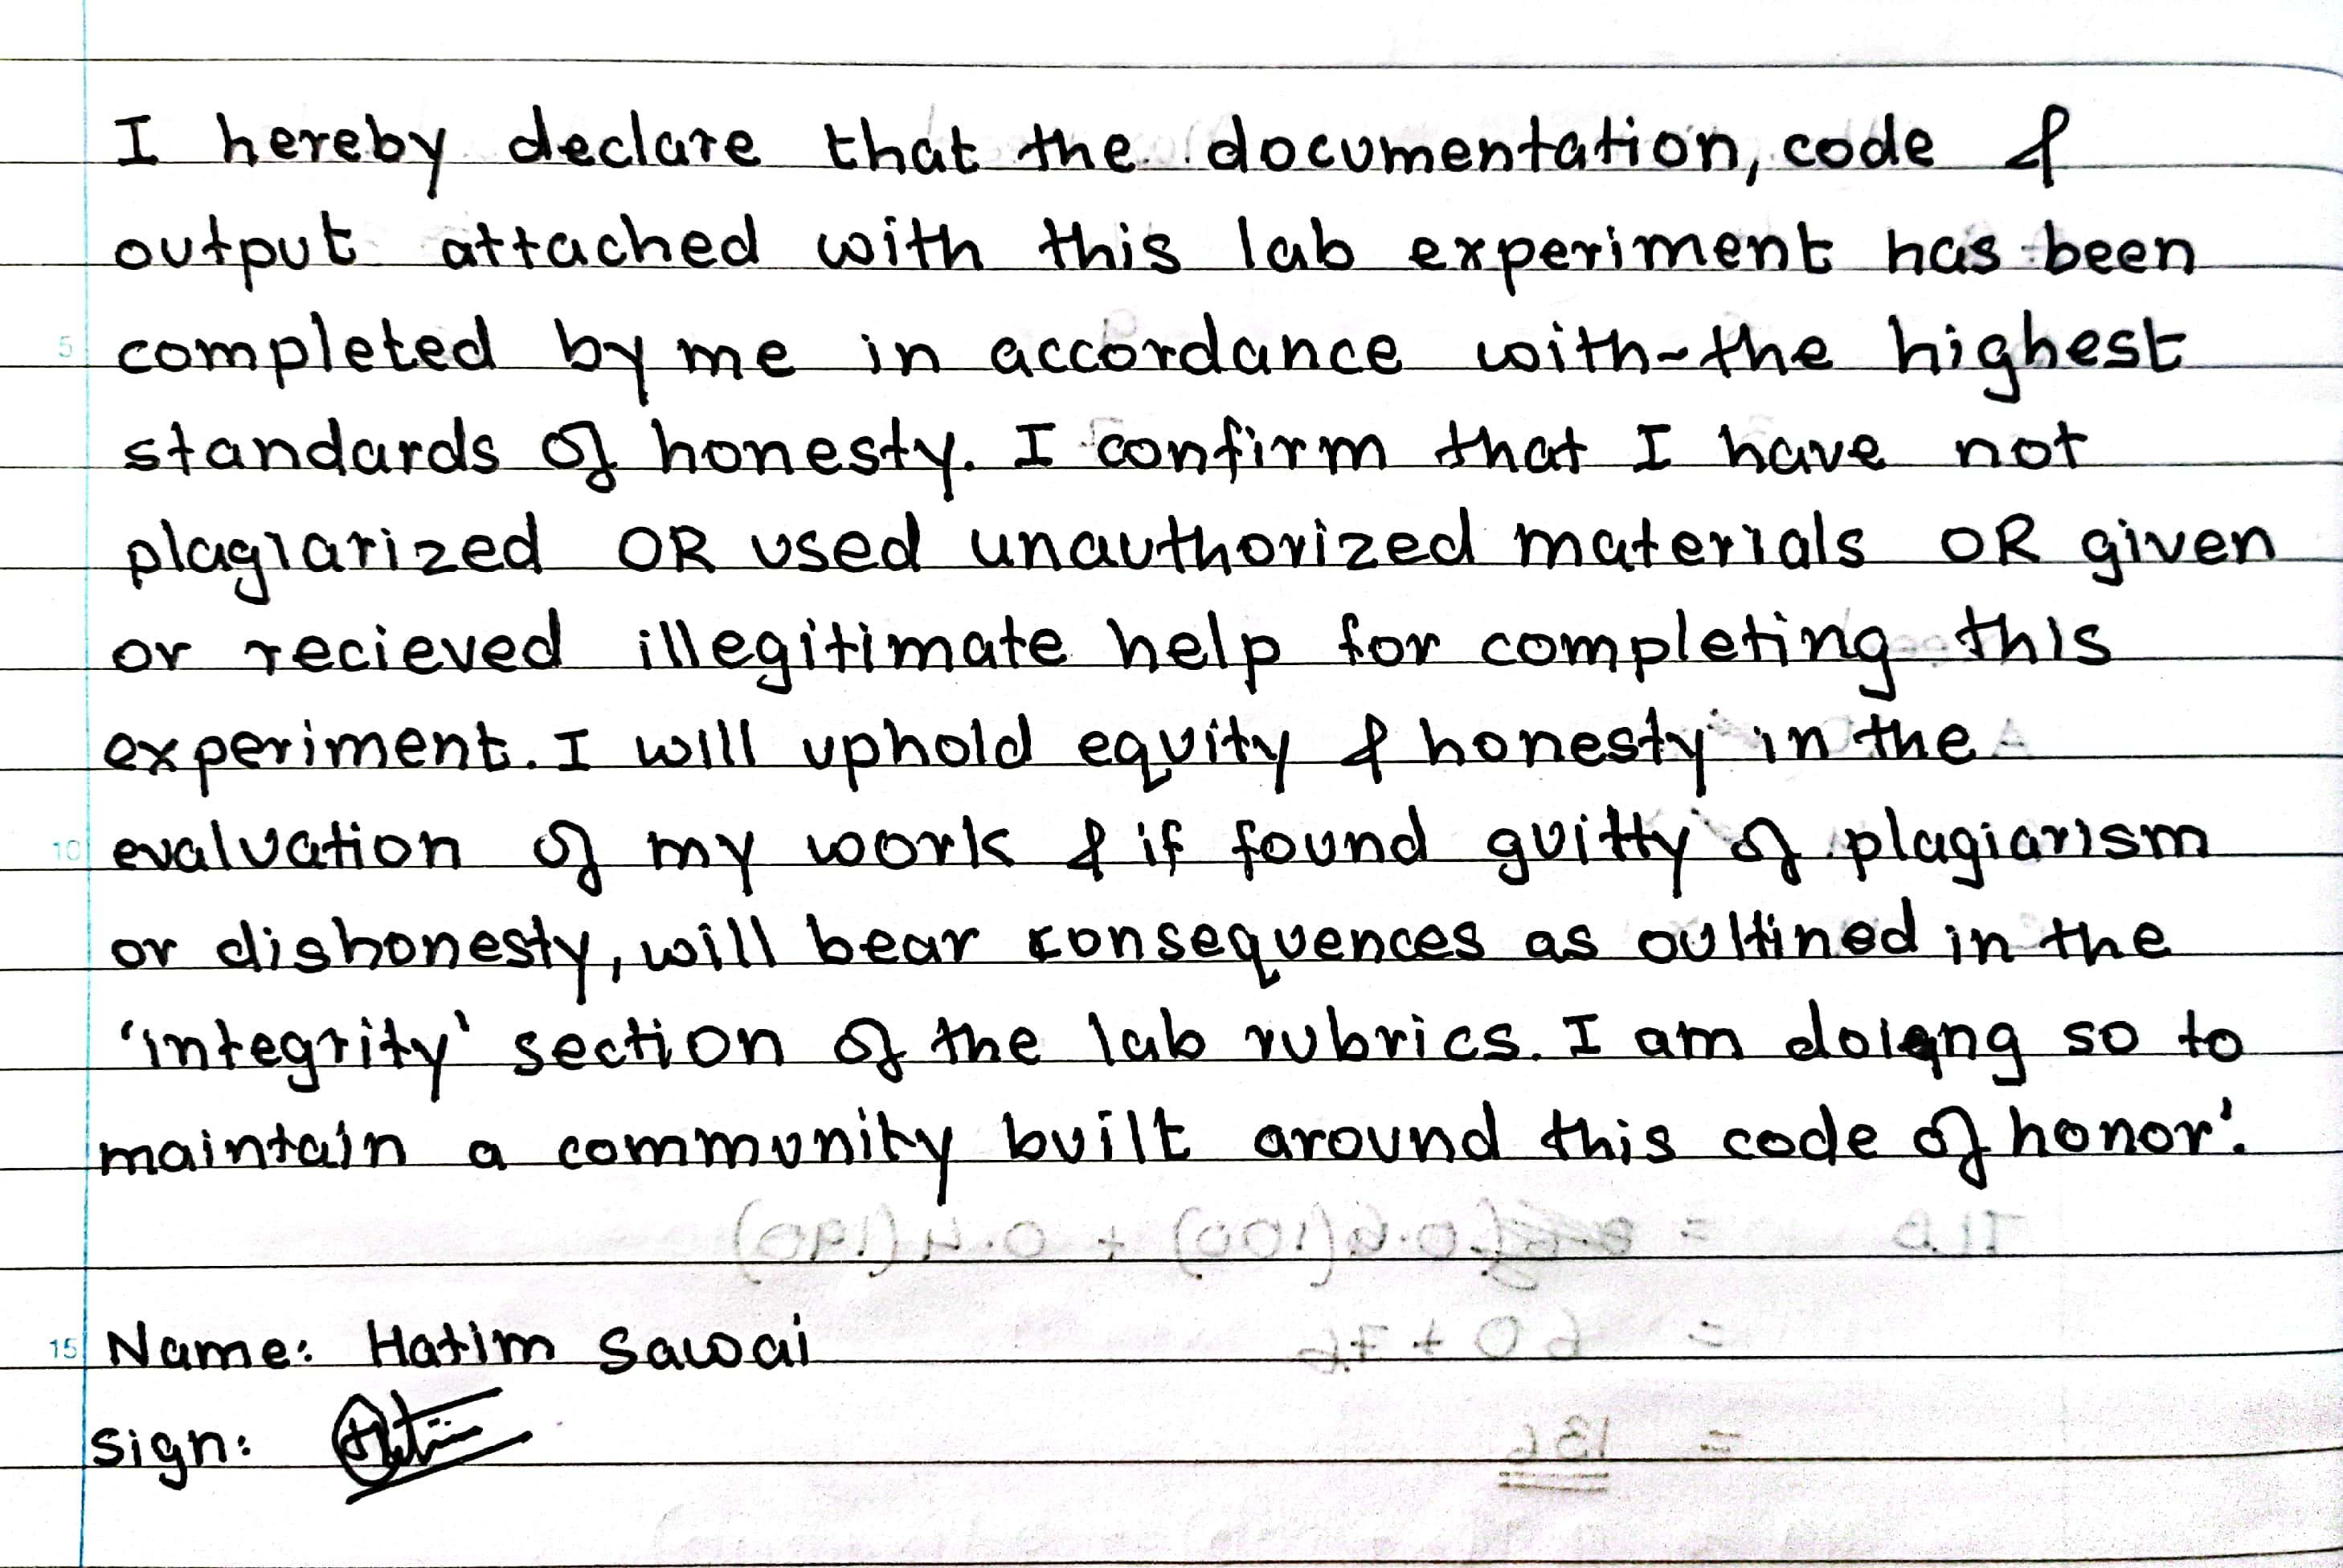 I hereby declare that the documentation, code &
output attached with this lab experiment has been
5 completed by me in accordance with the highest
standards of honesty. I confirm that I have not
plagiarized OR used unauthorized materials OR given
or recieved illegitimate help for completing this
experiment. I will uphold equity & honesty in the
10 evaluation of my work & if found guilty of plagiarism
or dishonesty, will bear consequences as outlined in the
'integrity' section of the lab rubrics. I am doing so to
maintain a community built around this code of honor'.
TLB = 0.6(100) + 0.4(190)
= 60 + 76
= 136
15 Name: Hatim Sawai
Sign: